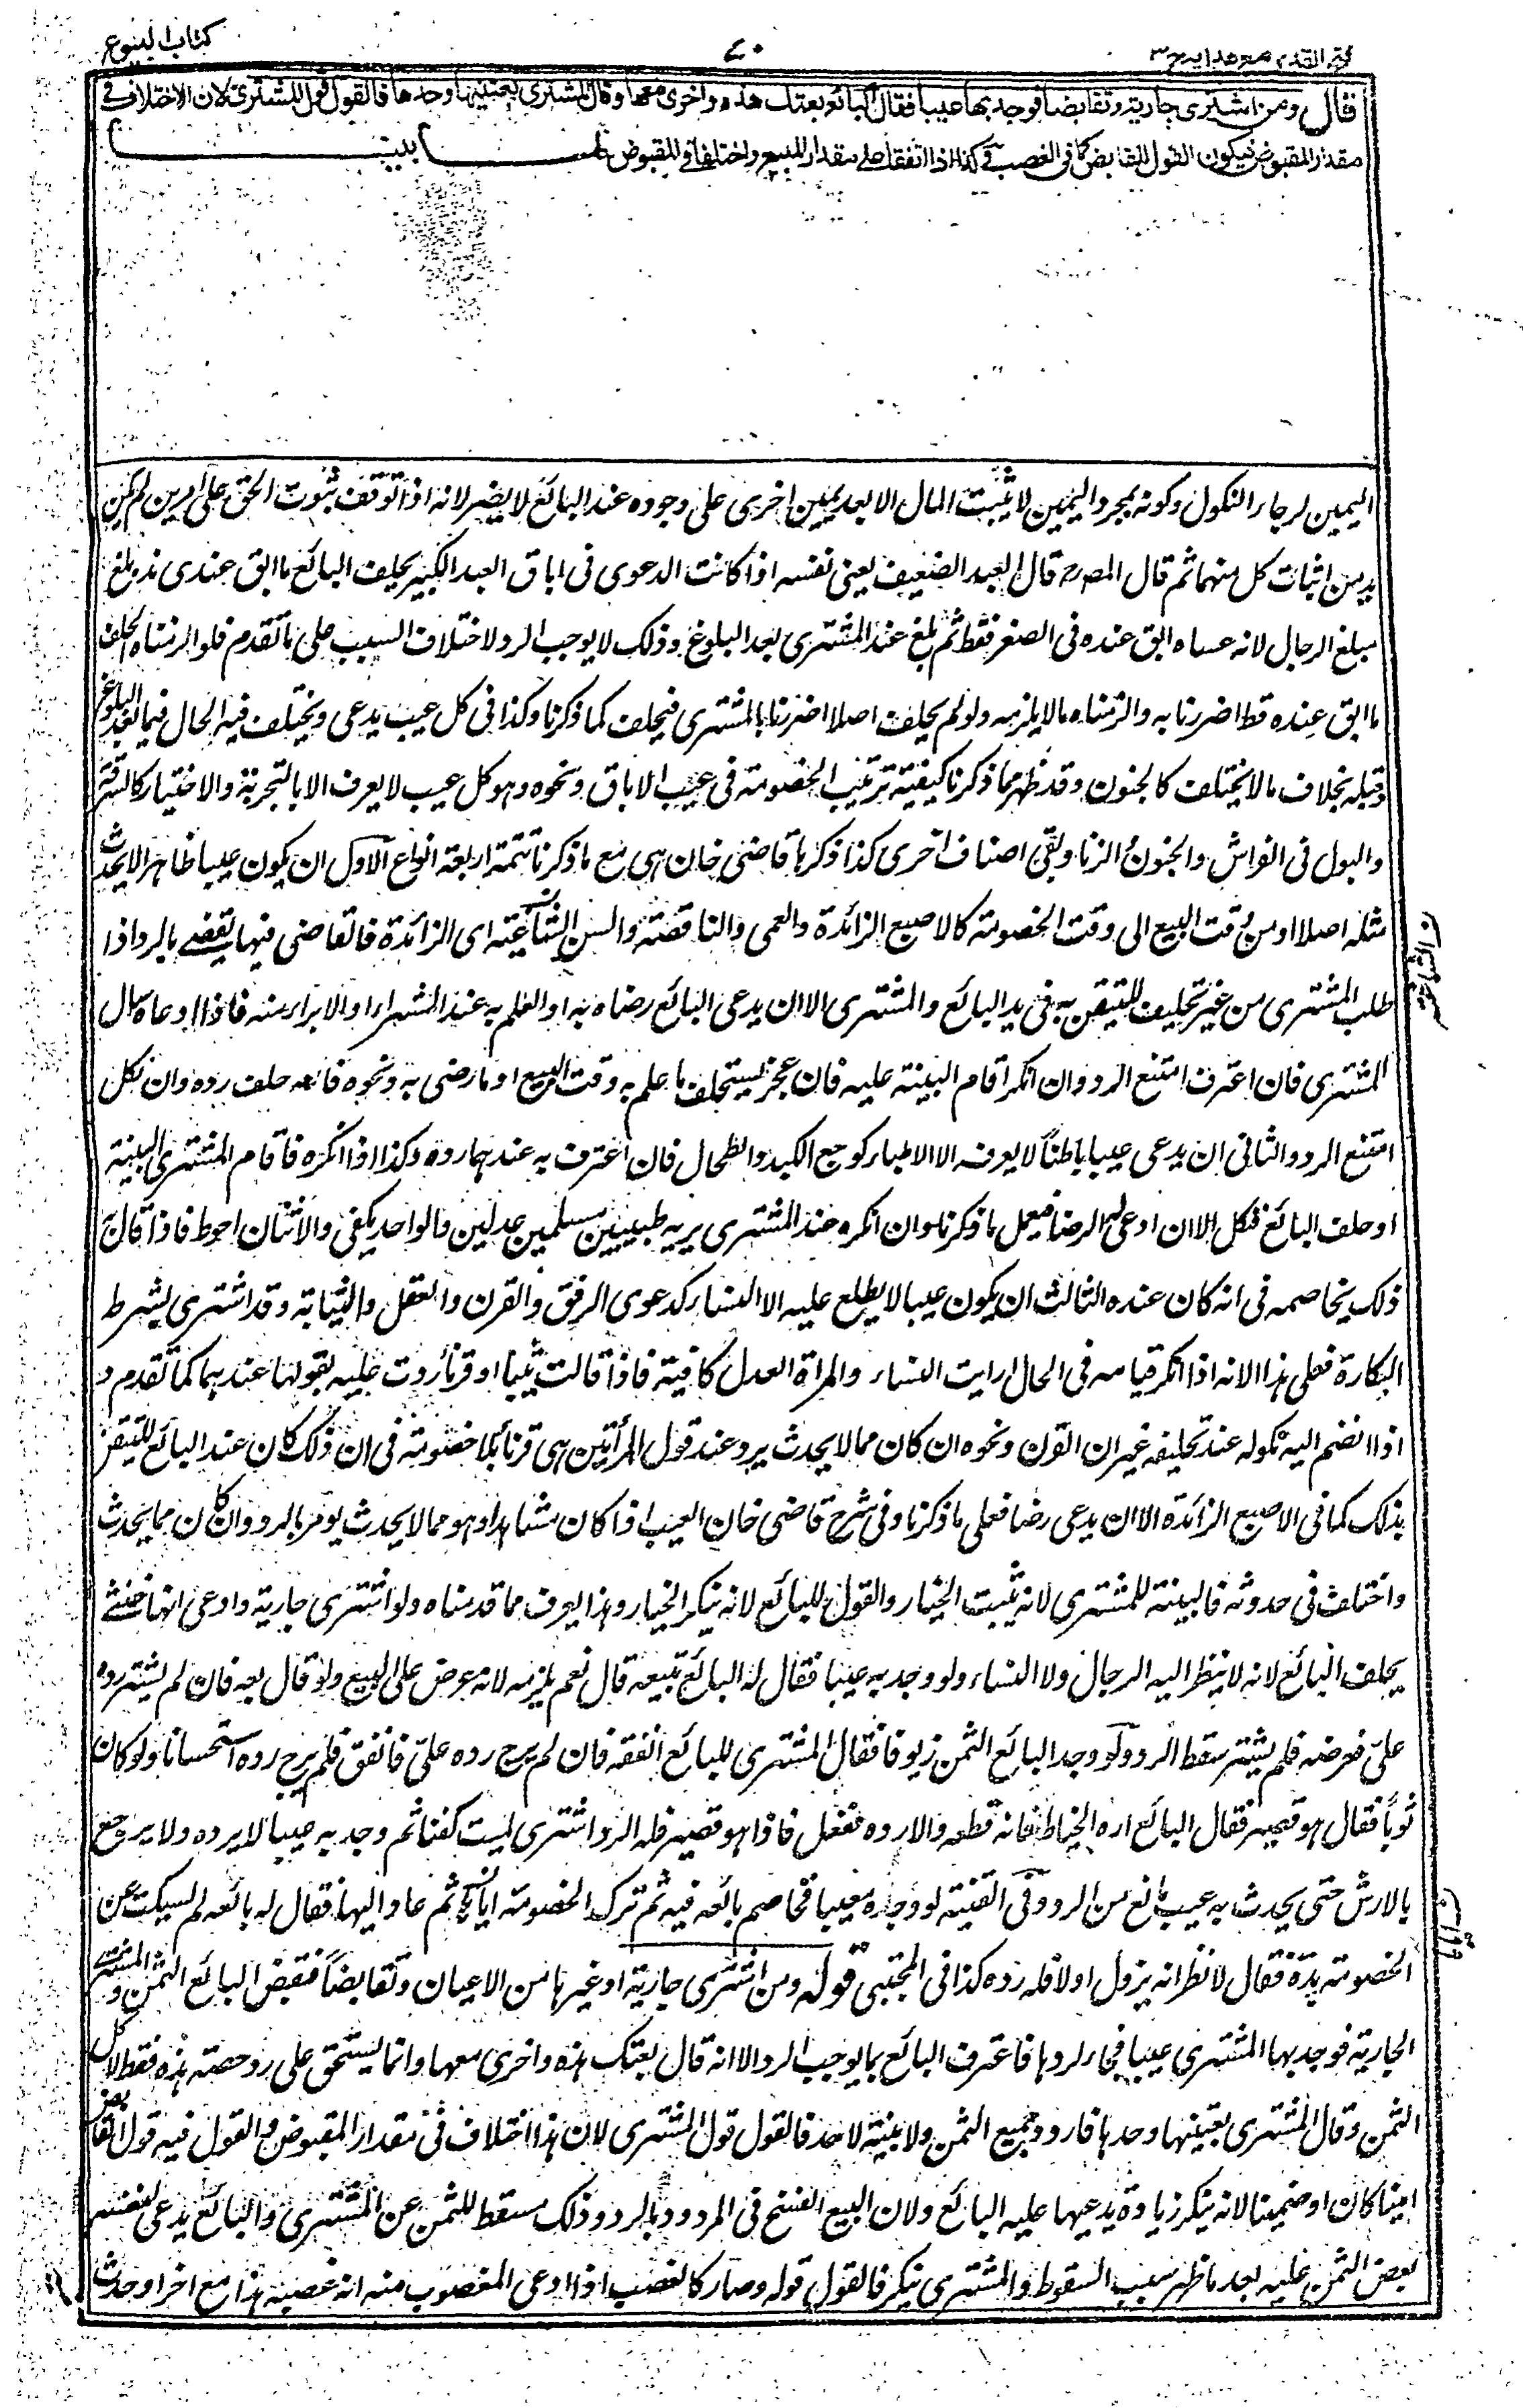 فتح القدير مع هدايه ج ٣
٧٠
كتاب البيوع
قال ومن اشترى جارية وتقابضا فوجد بها عيبا فقال البائع بعتك هذه واخرى معها وقال المشترى بعتنيها وحدها فالقول قول المشترى لان الاختلاف فى
مقدار المقبوض فيكون القول للقابض كما فى الغصب وكذا اذا اتفقا على مقدار المبيع واختلفا فى المقبوض لما بينا
اليمين لرجاء النكول وكونه بمجرد اليمين لا يثبت المال الا بعد يمين اخرى على وجوده عند البائع لا يضر لانه اذا توقف ثبوت الحق على امرين لم يكن
بد من اثبات كل منهما ثم قال المصرح قال العبد الضعيف يعنى نفسه اذا كانت الدعوى فى اباق العبد الكبير يحلف البائع ما ابق عندى منذ بلغ
مبلغ الرجال لانه عساه ابق عنده فى الصغر فقط ثم بلغ عند المشترى بعد البلوغ وذلك لا يوجب الرد لاختلاف السبب على ما تقدم فلو الزمناه الحلف
ما ابق عنده قط اضررنا به والزمناه ما لا يلزمه ولو لم يحلف اصلا اضررنا بالمشترى فيحلف كما ذكرنا وكذا فى كل عيب يدعى ويختلف فيه الحال فيما بعد البلوغ
وقبله بخلاف ما لا يختلف كالجنون وقد ظهر مما ذكرنا كيفية ترتيب الخصومة فى عيب الاباق ونحوه وهو كل عيب لا يعرف الا بالتجربة والاختبار كالسرقة
والبول فى الفراش والجنون والزنا وبقى اصناف اخرى كذا ذكرها قاضى خان هى مع ما ذكرنا تتمة اربعة انواع الاول ان يكون عيبا ظاهرا لا يحدث
مثله اصلا او من وقت البيع الى وقت الخصومة كالاصبع الزائدة والعمى والناقصة والسن الشاغية اى الزائدة فالقاضى فيها يقضى بالرد اذا
طلب المشترى من غير تحليف للتيقن به فى يد البائع والمشترى الا ان يدعى البائع رضاه به او العلم به عند الشراء او الابراء منه فاذا ادعاه سال
المشترى فان اعترف امتنع الرد وان انكر اقام البينة عليه فان عجز يستحلف ما علم به وقت البيع او ما رضى به ونحوه فان حلف رده وان نكل
امتنع الرد والثانى ان يدعى عيبا باطنا لا يعرفه الا الاطباء كوجع الكبد والطحال فان اعترف به عندهما رده وكذا اذا انكره فاقام المشترى البينة
او حلف البائع فنكل الا ان ادعى الرضا فيعمل ما ذكرنا وان انكره عند المشترى يريه طبيبين مسلمين عدلين والواحد يكفى والاثنان احوط فاذا قال
ذلك يخاصمه فى انه كان عنده الثالث ان يكون عيبا لا يطلع عليه الا النساء كدعوى الرتق والقرن والعفل والثيابة وقد اشترى بشرط
البكارة فعلى هذا الا انه اذا انكر قيامه فى الحال اريت النساء والمراة العدل كافية فاذا قالت ثيبا او قرناء ردت عليه بقولها عندهما كما تقدم و
اذا انضم اليه نكوله عند تحليفه غير ان القرن ونحوه ان كان مما لا يحدث يرد عند قول المرأتين هى قرناء بلا خصومة فى ان ذلك كان عند البائع للتيقن
بذلك كما فى الاصبع الزائدة الا ان يدعى رضا فعلى ما ذكرنا وفى شرح قاضى خان العيب اذا كان مشاهدا وهو مما لا يحدث يؤمر بالرد وان كان مما يحدث
واختلف فى حدوثه فالبينة للمشترى لانه يثبت الخيار والقول للبائع لانه ينكر الخيار وهذا يعرف مما قدمناه ولو اشترى جارية وادعى انها خنثى
يحلف البائع لانه لا ينظر اليه الرجال ولا النساء ولو وجد به عيبا فقال له البائع تبيعه قال نعم يلزمه لانه عرض على البيع ولو قال بعه فان لم يشتر رده
علىّ فعرضه فلم يشتر سقط الرد ولو وجد البائع الثمن زيوفا فقال المشترى للبائع انفقه فان لم يرج رده علىّ فانفق فلم يرج رده استحسانا ولو كان
ثوباً فقال هو قصير فقال البائع اره الخياط فانه قطعه والا رده ففعل فاذا هو قصير فله الرد اشترى لميت كفنا ثم وجد به عيبا لا يرده ولا يرجع
بالارش حتى يحدث به عيب مانع من الرد وفى القنية لو وجده معيبا فخاصم بائعه فيه ثم ترك الخصومة اياما ثم عاد اليها فقال له بائعه لم امسكت عن
الخصومة مدة فقال لانظر انه يزول اولا فله رده كذا فى المجتبى قوله ومن اشترى جارية او غيرها من الاعيان وتقابضا فقبض البائع الثمن والمشترى
الجارية فوجد بها المشترى عيبا فجاء لردها فاعترف البائع بما يوجب الرد الا انه قال بعتك هذه واخرى معها وانما يستحق على رد حصته هذه فقط لا كل
الثمن وقال المشترى بعتنيها وحدها فاردد جميع الثمن ولا بينة لاحد فالقول قول المشترى لان هذا اختلاف فى مقدار المقبوض والقول فيه قول القابض
امينا كان او ضمينا لانه ينكر زيادة يدعيها عليه البائع ولان البيع انفسخ فى المردود بالرد وذلك مسقط للثمن عن المشترى والبائع يدعى لنفسه
بعض الثمن عليه بعد ما ظهر سبب السقوط والمشترى ينكر فالقول قوله وصار كالغصب اذا ادعى المغصوب منه انه غصبه هذا مع اخر او حدث